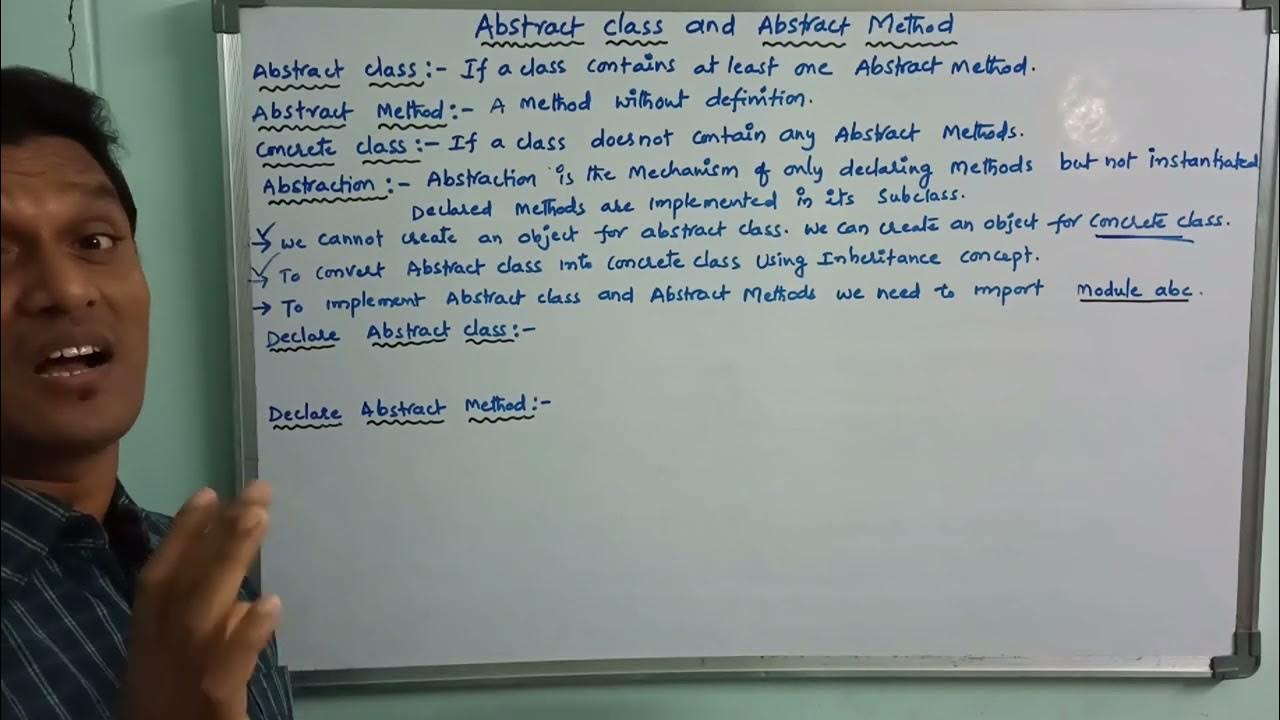 Abstract class and Abstract Method
Abstract class:- If a class contains at least one Abstract Method.
Abstract Method:- A Method without definition.
Concrete class:- If a class does not contain any Abstract Methods.
Abstraction:- Abstraction is the Mechanism of only declaring Methods but not instantiated
Declared Methods are implemented in its Subclass.
→ we cannot create an object for abstract class. we can create an object for concrete class.
→ To convert Abstract class into concrete class Using Inheritance concept.
→ To implement Abstract class and Abstract Methods we need to import Module abc.
Declare Abstract class:-
Declare Abstract Method:-